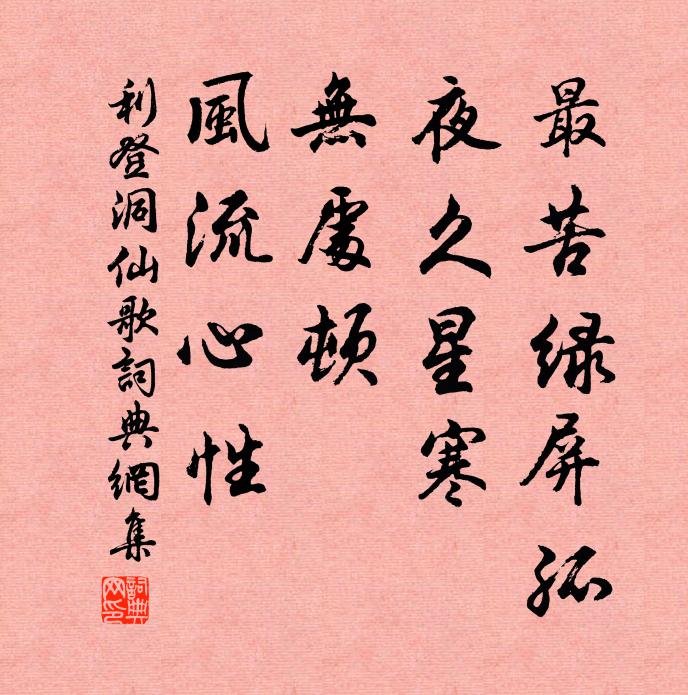 最苦緑屏孤
夜久星寒
無處頓
風流心性
利登洞仙歌詞典網集
詞典網印